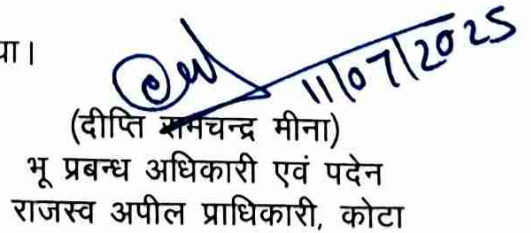 या।
11/07/2025
(दीप्ति रामचन्द्र मीना)
भू प्रबन्ध अधिकारी एवं पदेन
राजस्व अपील प्राधिकारी, कोटा